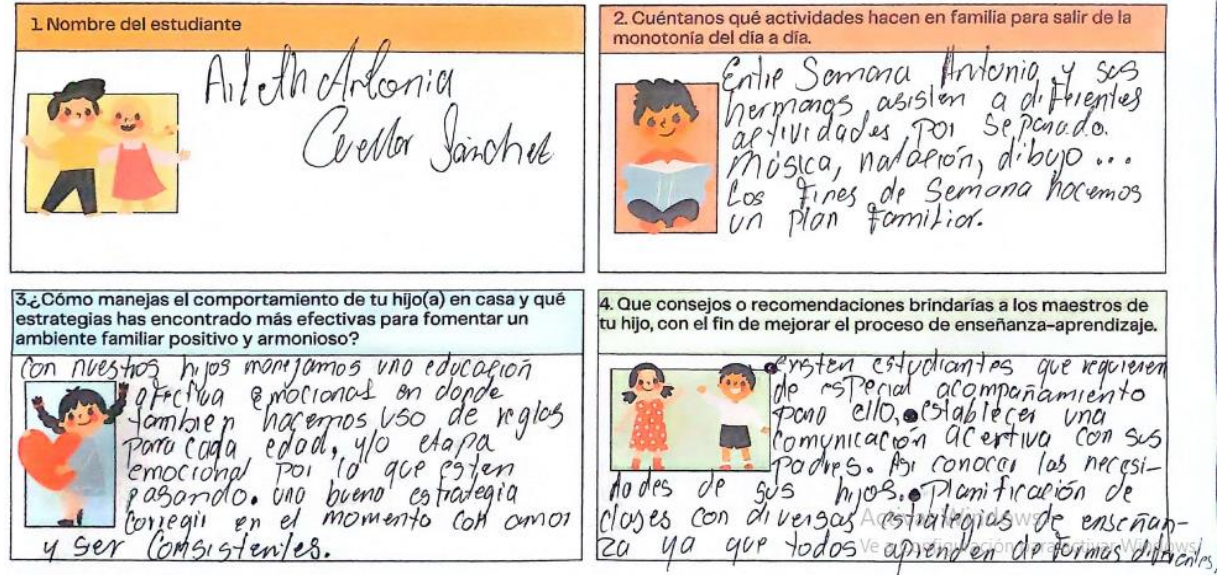 1. Nombre del estudiante
Aileth Antonia
Cuellar Sánchez
2. Cuéntanos qué actividades hacen en familia para salir de la
monotonía del día a día.
Entre Semana Antonia y sus
hermanos asisten a diferentes
actividades por separado.
Música, natación, dibujo ...
Los fines de Semana hacemos
un plan familiar.
3.¿Cómo manejas el comportamiento de tu hijo(a) en casa y qué
estrategias has encontrado más efectivas para fomentar un
ambiente familiar positivo y armonioso?
Con nuestros hijos manejamos una educación
afectiva emocional en donde
tambien hacemos uso de reglas
para cada edad, y/o etapa
emocional por la que esten
pasando. una buena estrategia
Corregir en el momento con amor
y ser Consistentes.
4. Que consejos o recomendaciones brindarías a los maestros de
tu hijo, con el fin de mejorar el proceso de enseñanza-aprendizaje.
Existen estudiantes que requieren
de especial acompañamiento
para ello, establecer una
comunicación acertiva con sus
Padres. Asi conocer las necesi-
dades de sus hijos. Planificación de
clases con diversas estrategias de enseñan-
za ya que todos aprenden de formas diferentes.
Activar Windows
Ve a Configuración para activar Windows.